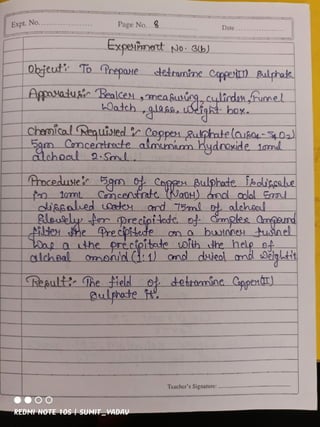 Expt. No. Page No. 8 Date
Experiment No. 3(b)
Object:- To Prepare detramine Copper(II) Sulphate
Apparatus:- Beaker, measuring, cylinder, Funnel
Watch, glass, weight box.
Chemical Required:- Copper Sulphate
5gm Concentrate aluminium hydroxide 10ml
alcheal 2.5ml.
Procedure:- 5gm of Copper Sulphate is dissolve
in 10ml Concentrate (NaOH) and add 5ml
dissolved water and 75ml of alcheal
Slowely for precipitate of Complex Compound
filter the Precipitate on a burnner funnel
Was a the precipitate with the help of
alcheal amonid (1:1) and dried and weight it
Result:- The field of detramine Copper(II)
Sulphate is.
Teacher's Signature:
REDMI NOTE 10S | SUMIT_YADAV